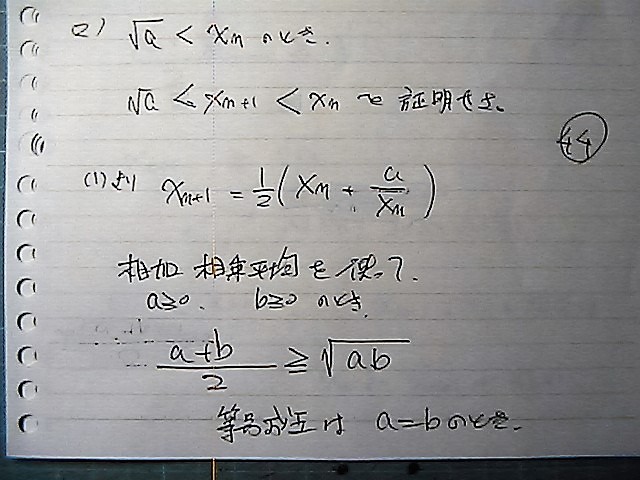 2) √a < xn のとき.
√a < xn+1 < xn を 証明せよ。
44
(1)より xn+1 = 1/2 (xn + a/xn)
相加 相乗平均を使って.
a≥0. b≥0 のとき.
(a+b)/2 ≥ √ab
等号成立は a=bのとき.